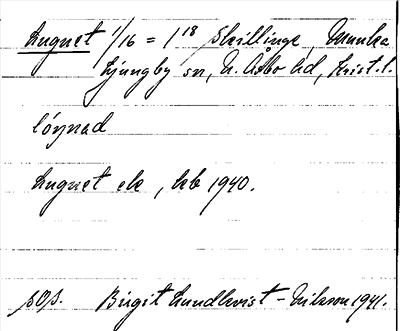 Lugnet 1/16 = 1 18 Skillinge, Munka
Ljungby sn, N. Åsbo hd, Krist. l.
lóynad
Lugnet ek, hb 1940.
sOs. Birgit Lundkvist - Nilsson 1941.